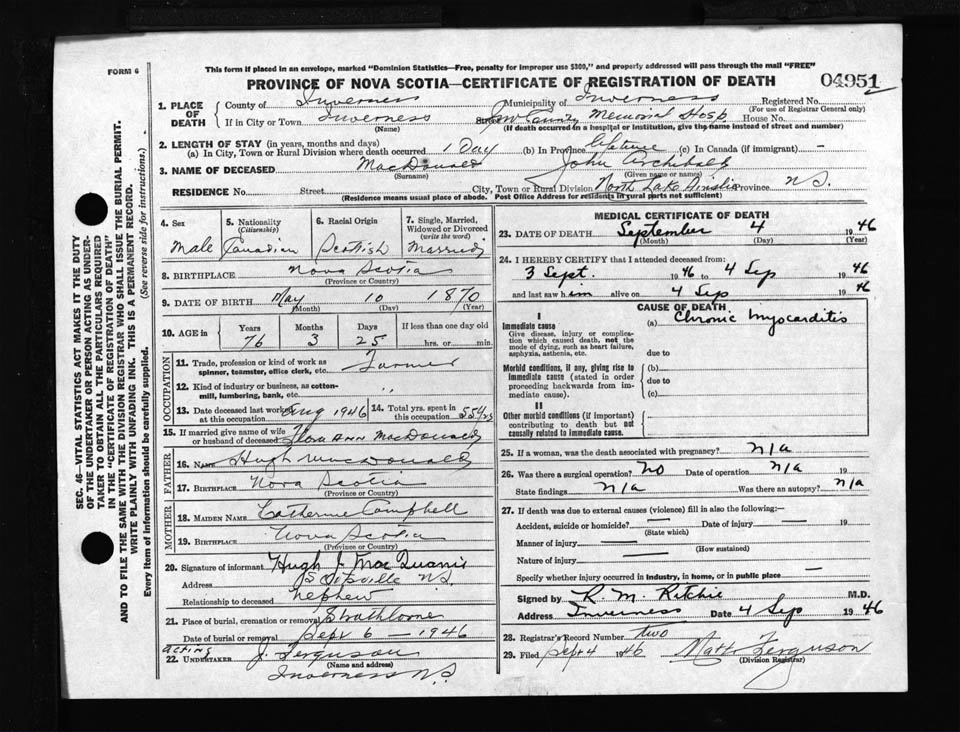 FORM 6
This form if placed in an envelope, marked "Dominion Statistics—Free, penalty for improper use $300," and properly addressed will pass through the mail "FREE"
PROVINCE OF NOVA SCOTIA—CERTIFICATE OF REGISTRATION OF DEATH
04951
1. PLACE OF DEATH
County of Inverness Municipality of Inverness Registered No.
(For use of Registrar General only)
If in City or Town Inverness Street County Memorial Hosp House No.
(Name) (If death occurred in a hospital or institution, give the name instead of street and number)
2. LENGTH OF STAY (in years, months and days)
(a) In City, Town or Rural Division where death occurred 1 Day (b) In Province lifetime (c) In Canada (if immigrant) —
3. NAME OF DECEASED MacDonald John Archibald
(Surname) (Given name or names)
RESIDENCE No. Street City, Town or Rural Division North Lake Ainslie Province N.S.
(Residence means usual place of abode. Post Office Address for residents in rural parts not sufficient)
4. Sex Male
5. Nationality (Citizenship) Canadian
6. Racial Origin Scottish
7. Single, Married, Widowed or Divorced (write the word) Married
8. BIRTHPLACE Nova Scotia
(Province or Country)
9. DATE OF BIRTH May 10 1870
(Month) (Day) (Year)
10. AGE in Years 76 Months 3 Days 25 If less than one day old hrs. or min.
OCCUPATION
11. Trade, profession or kind of work as spinner, teamster, office clerk, etc. Farmer
12. Kind of industry or business, as cotton-mill, lumbering, bank, etc. ,,
13. Date deceased last worked at this occupation Aug 1946 14. Total yrs. spent in this occupation 55 yrs
15. If married give name of wife or husband of deceased Flora Ann MacDonald
FATHER
16. NAME Hugh MacDonald
17. BIRTHPLACE Nova Scotia
(Province or Country)
MOTHER
18. MAIDEN NAME Catherine Campbell
19. BIRTHPLACE Nova Scotia
(Province or Country)
20. Signature of informant Hugh J. MacQuarrie
Address N.S.
Relationship to deceased nephew
21. Place of burial, cremation or removal Strathlorne
Date of burial or removal Sept 6 — 1946
acting
22. UNDERTAKER J. Ferguson
(Name and address)
Inverness N.S.
MEDICAL CERTIFICATE OF DEATH
23. DATE OF DEATH September 4 1946
(Month) (Day) (Year)
24. I HEREBY CERTIFY that I attended deceased from:
3 Sept. 1946 to 4 Sep 1946
and last saw him alive on 4 Sep 1946
CAUSE OF DEATH
I
Immediate cause (a) Chronic myocarditis
Give disease, injury or complication which caused death, not the mode of dying, such as heart failure, asphyxia, asthenia, etc.
due to
Morbid conditions, if any, giving rise to immediate cause (stated in order proceeding backwards from immediate cause).
(b)
due to
(c)
II
Other morbid conditions (if important) contributing to death but not causally related to immediate cause.
25. If a woman, was the death associated with pregnancy? n/a
26. Was there a surgical operation? no Date of operation n/a 19
State findings n/a Was there an autopsy? n/a
27. If death was due to external causes (violence) fill in also the following:—
Accident, suicide or homicide? — Date of injury — 19
(State which)
Manner of injury —
(How sustained)
Nature of injury —
Specify whether injury occurred in industry, in home, or in public place —
Signed by R. M. Ritchie M.D.
Address Inverness Date 4 Sep 1946
28. Registrar's Record Number two
29. Filed Sept 4 1946 Matt Ferguson
(Division Registrar)
SEC. 46—VITAL STATISTICS ACT MAKES IT THE DUTY
OF THE UNDERTAKER OR PERSON ACTING AS UNDER-
TAKER TO OBTAIN ALL THE PARTICULARS REQUIRED
IN THE "CERTIFICATE OF REGISTRATION OF DEATH"
AND TO FILE THE SAME WITH THE DIVISION REGISTRAR WHO SHALL ISSUE THE BURIAL PERMIT.
WRITE PLAINLY WITH UNFADING INK. THIS IS A PERMANENT RECORD.
Every item of information should be carefully supplied. (See reverse side for instructions.)